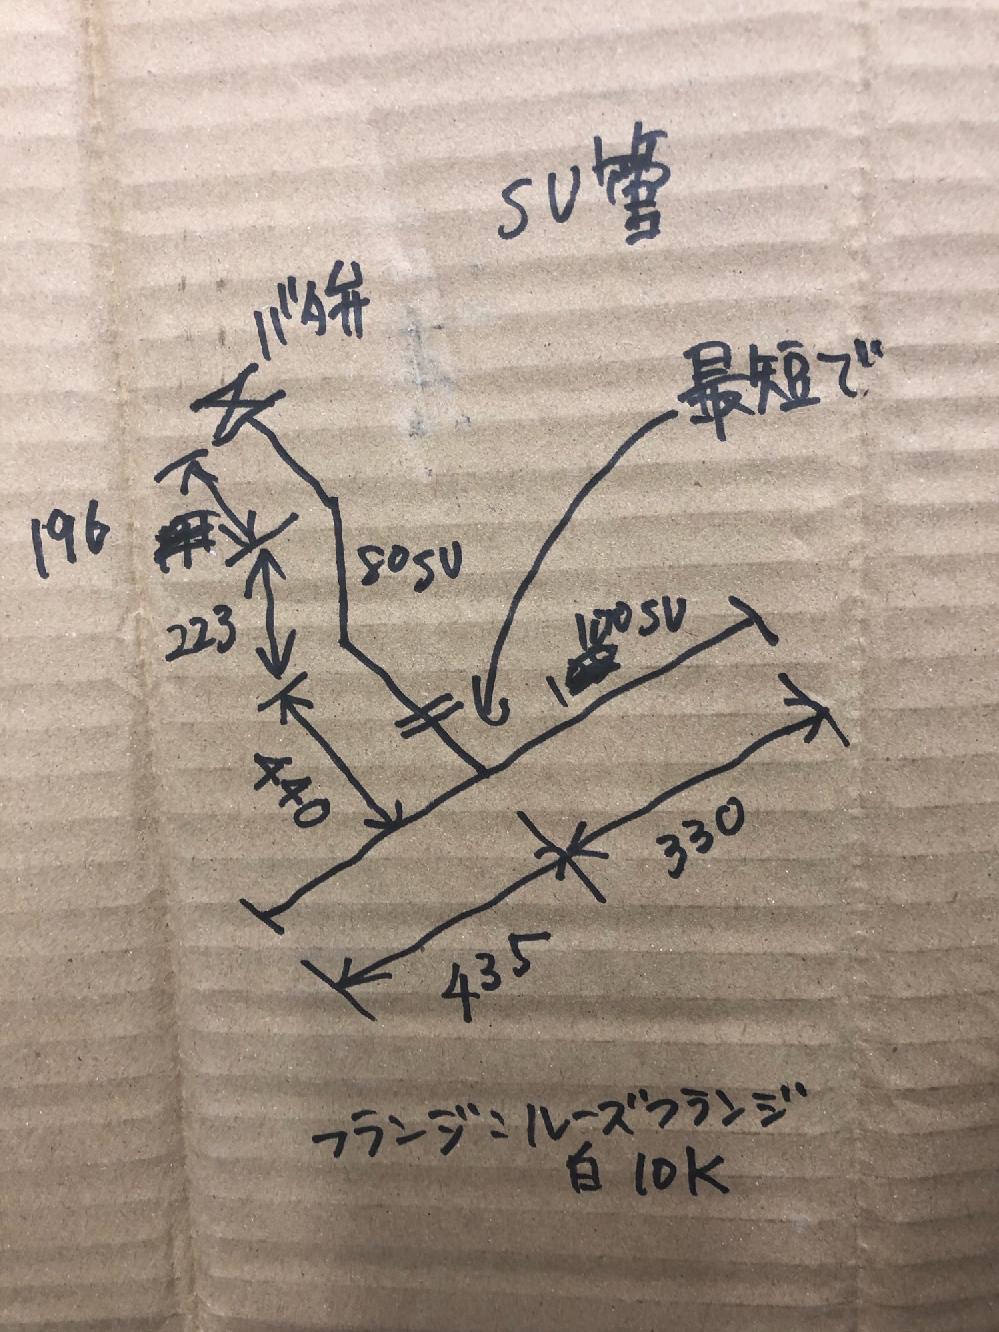 SU管
バタ弁
最短で
196
80SU
223
100SU
440
330
435
フランジ：ルーズフランジ
白 10K